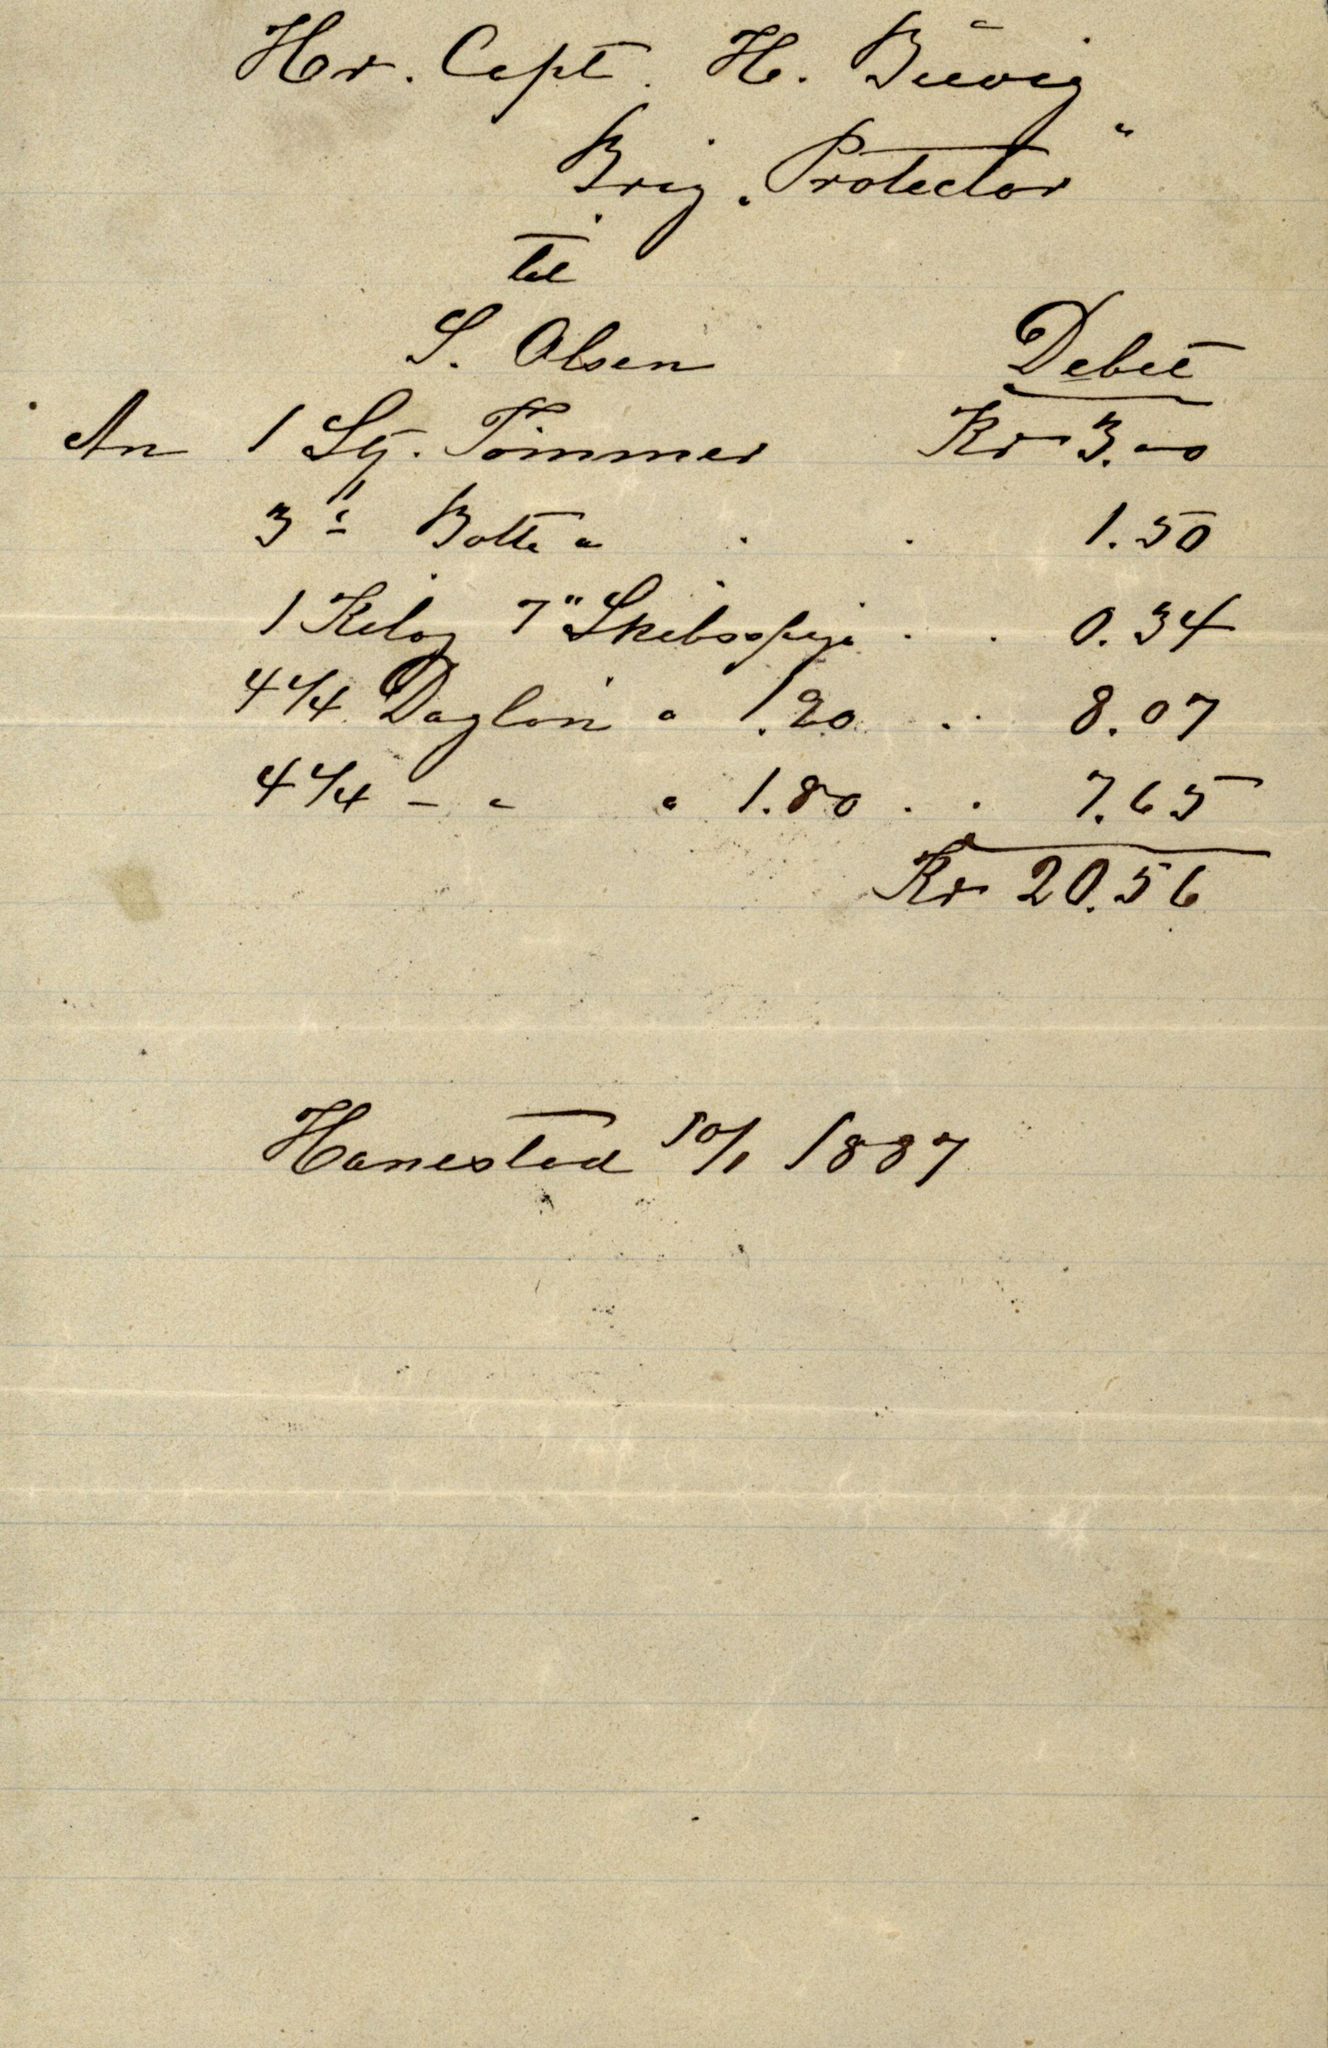 Hr. Capt. H. Buvig
Brig „Protector“
til
S. Olsen Debet
An 1 Stj. Tömmer Kr 3.00
3 " Bolte " . . 1.50
1 Kilog 7" Skibsspiger . . 0.34
4 1/4 Daglön " 1.90 . . 8.07
4 1/4 - " " 1.80 . . 7.65
Kr 20.56
Hanestad 10/1 1887